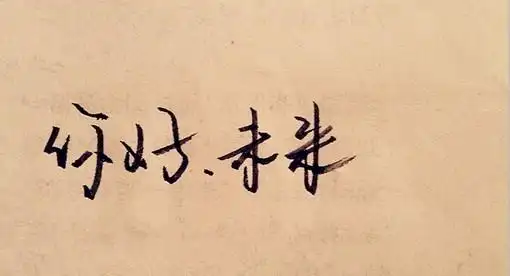 你好、未来